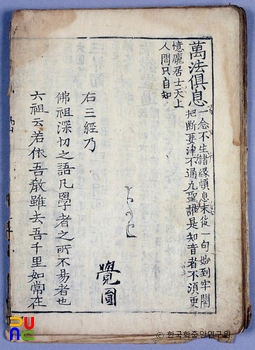 萬法俱息
一念不生諸緣頓息末後一句始到牢關
把斷要津不通凡聖誰是知音者不須更
憶龐居士天上
人間只自知
右三經乃
佛祖深切之語凡學者之所不易者也
六祖云若依吾敎雖去吾千里如常在
覺圓
한국학중앙연구원